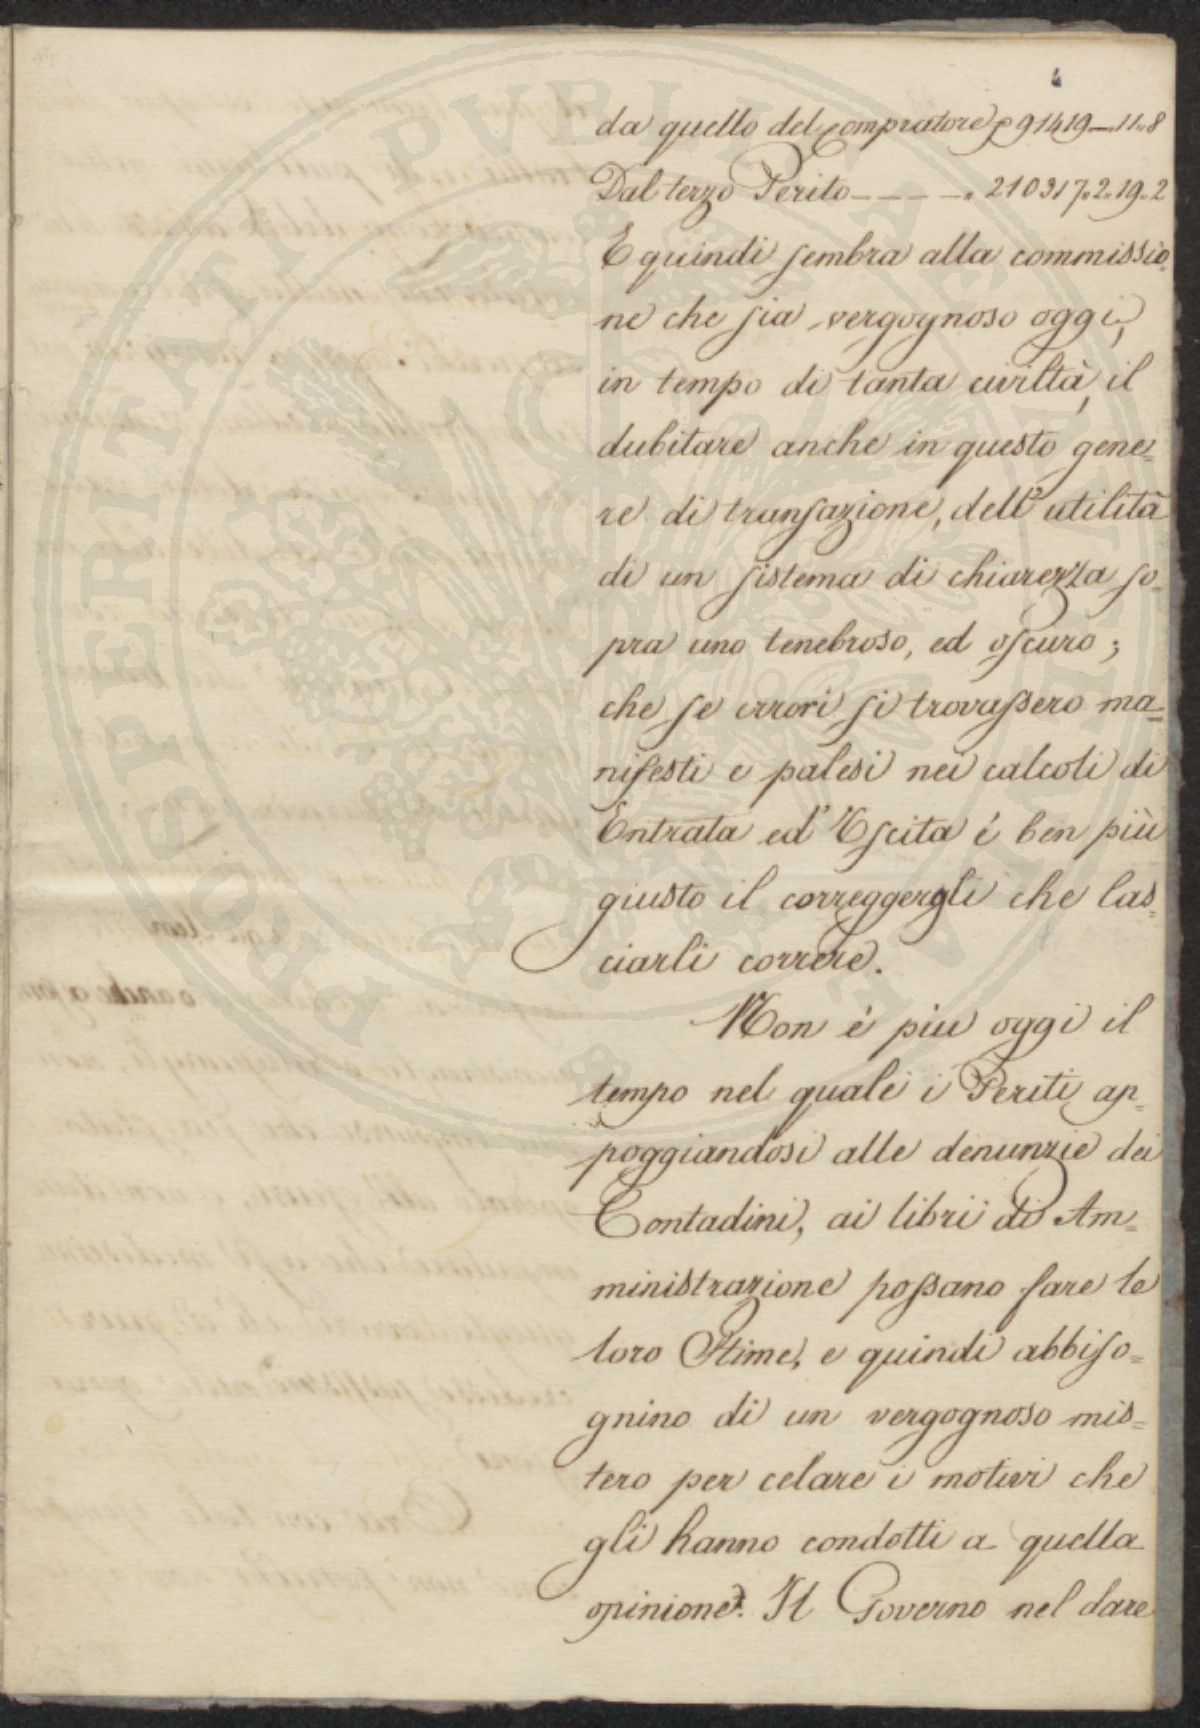 4
da quello del compratore £ 91419–„11„8
Dal terzo Perito – – – – „ 210317„2„19„2
E quindi sembra alla commissio„
ne che sia vergognoso oggi,
in tempo di tanta civiltà, il
dubitare anche in questo gene=
re di transazione, dell'utilità
di un sistema di chiarezza so„
pra uno tenebroso, ed oscuro;
che se errori si trovassero ma=
nifesti e palesi nei calcoli di
Entrata ed' Escita é ben più
giusto il correggergli che las„
ciarli correre.
Non è piu oggi il
tempo nel quale i Periti ap„
poggiandosi alle denunzie dei
Contadini, ai libri di Am=
ministrazione possano fare le
loro Stime, e quindi abbiso=
gnino di un vergognoso mis=
tero per celare i motivi che
gli hanno condotti a quella
opinione. Il Governo nel dare
PROSPERITATI PVBLICAE